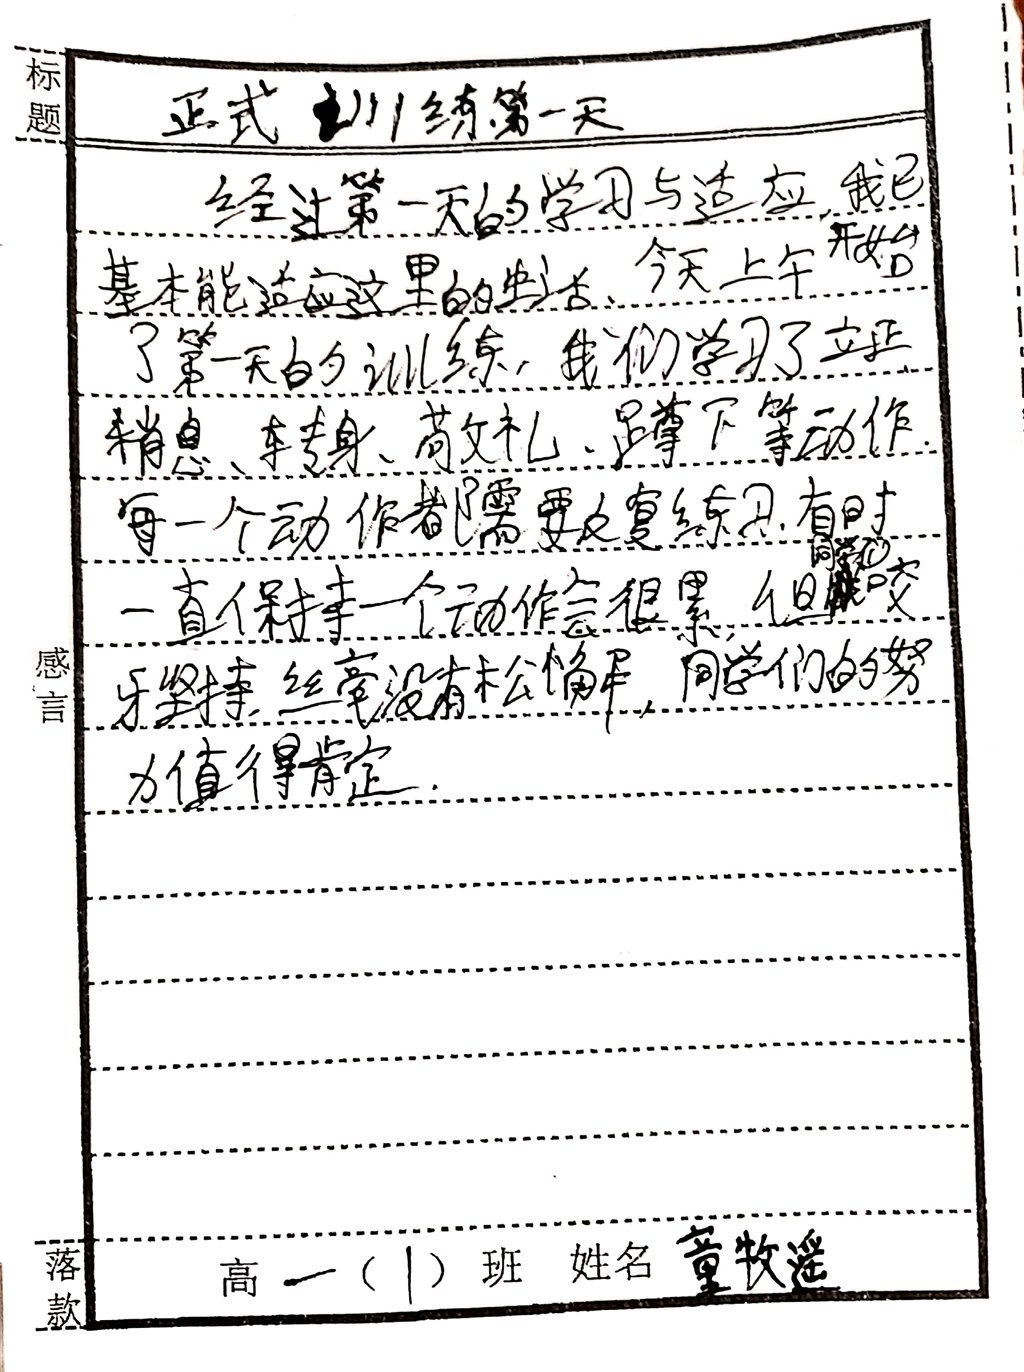 标题
正式训练第一天
经过第一天的学习与适应,我已
基本能适应这里的生活、今天上午开始
了第一天的训练,我们学习了立正、
稍息、转身、敬礼、蹲下等动作.
每一个动作都需要反复练习.有时
一直保持一个动作会很累,但同学们咬
牙坚持、丝毫没有松懈,同学们的努
力值得肯定.
感言
落款
高一(1)班 姓名 童牧遥